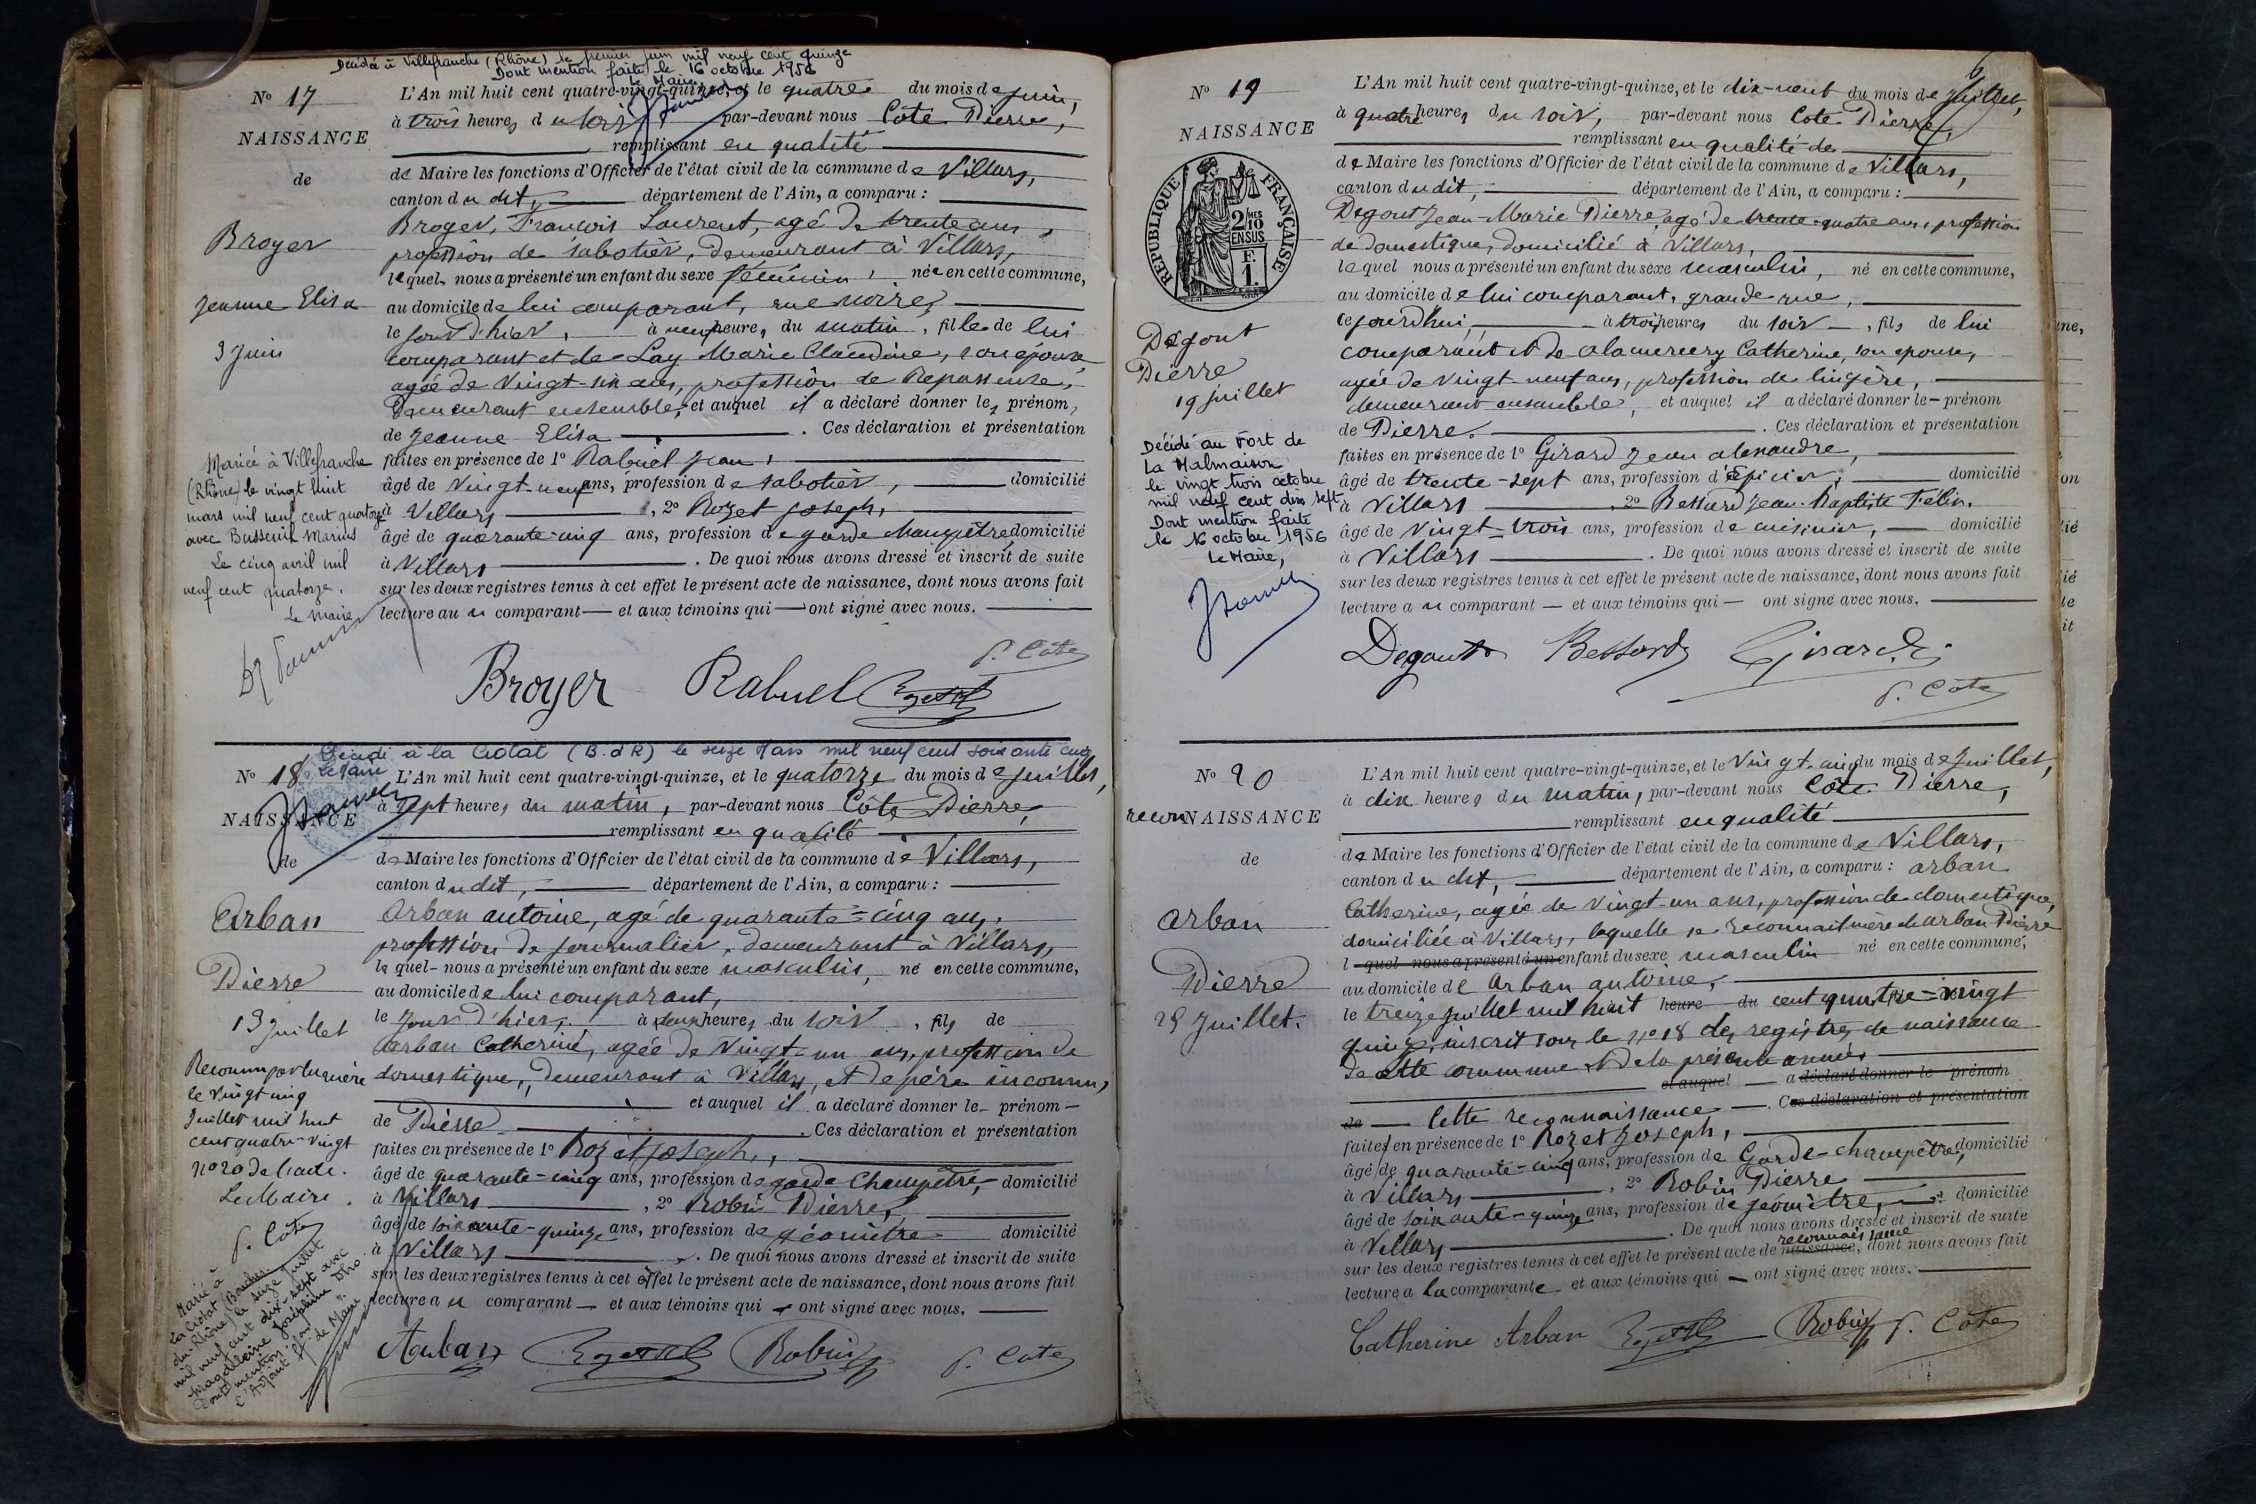 Décédée à Villefranche (Rhône) le premier juin mil neuf cent quinze
Dont mention faite le 16 octobre 1956
Le Maire,
N° 17
NAISSANCE
de
Broyer
Jeanne Elisa
3 Juin
Mariée à Villefranche
(Rhône) le vingt huit
mars mil neuf cent quatorze
avec Busseuil Marius
Le cinq avril mil
neuf cent quatorze.
Le Maire
L'An mil huit cent quatre-vingt-quinze, et le quatre du mois de juin,
à trois heures du soir, par-devant nous Côte Pierre,
remplissant en qualité
de Maire les fonctions d'Officier de l'état civil de la commune de Villars,
canton du dit, département de l'Ain, a comparu :
Broyer, François Laurent, agé de trente ans,
profession de sabotier, demeurant à Villars,
lequel nous a présenté un enfant du sexe féminin, née en cette commune,
au domicile de lui comparant, rue noire,
le jour d'hier, à neuf heures du matin, fille de lui
comparant et de Lay Marie Claudine, son épouse,
agée de vingt-six ans, profession de Repasseuse,
Demeurant ensemble, et auquel il a déclaré donner les prénoms
de Jeanne Elisa. Ces déclaration et présentation
faites en présence de 1° Rabuel Jean,
âgé de vingt-neuf ans, profession de sabotier, domicilié
à Villars, 2° Rozet Joseph,
âgé de quarante-cinq ans, profession de garde champêtre, domicilié
à Villars. De quoi nous avons dressé et inscrit de suite
sur les deux registres tenus à cet effet le présent acte de naissance, dont nous avons fait
lecture au comparant — et aux témoins qui — ont signé avec nous.
P. Côte
Broyer Rabuel Rozet
Décédé à la Ciotat (B.d.R) le seize Mars mil neuf cent soixante cinq
Le Maire
N° 18
NAISSANCE
de
Arban
Pierre
13 Juillet
Reconnu par la mère
le vingt cinq
Juillet mil huit
cent quatre-vingt
n° 20 de l'acte.
Le Maire.
P. Côte
Marié à
La Ciotat (Bouches-
du-Rhône) le seize juillet
mil neuf cent dix-sept avec
Magdeleine Joséphine
Dont mention.
L'Adjoint ff. de Maire
L'An mil huit cent quatre-vingt-quinze, et le quatorze du mois de juillet,
à sept heures du matin, par-devant nous Côte Pierre,
remplissant en qualité
de Maire les fonctions d'Officier de l'état civil de la commune de Villars,
canton du dit, département de l'Ain, a comparu :
Arban antoine, agé de quarante-cinq ans,
profession de journalier, demeurant à Villars,
lequel nous a présenté un enfant du sexe masculin, né en cette commune,
au domicile de lui comparant,
le jour d'hier, à heures du soir, fils de
Arban Catherine, agée de Vingt-un ans, profession de
domestique, demeurant à Villars, et de père inconnu,
et auquel il a déclaré donner le prénom
de Pierre. Ces déclaration et présentation
faites en présence de 1° Rozet Joseph,
âgé de quarante-cinq ans, profession de garde Champêtre, domicilié
à Villars, 2° Robin Pierre,
âgé de soixante-quinze ans, profession de géomètre domicilié
à Villars. De quoi nous avons dressé et inscrit de suite
sur les deux registres tenus à cet effet le présent acte de naissance, dont nous avons fait
lecture au comparant — et aux témoins qui — ont signé avec nous.
Arban Rozet Robin P. Côte
6
N° 19
NAISSANCE
RÉPUBLIQUE FRANÇAISE
2/10 MES
EN SUS
F.
1.
Dégout
Pierre
19 juillet
Décédé au Fort de
La Malmaison
le vingt trois octobre
mil neuf cent dix sept
Dont mention faite
le 16 octobre 1956
Le Maire,
L'An mil huit cent quatre-vingt-quinze, et le dix-neuf du mois de juillet,
à quatre heures du soir, par-devant nous Côte Pierre,
remplissant en qualité de
de Maire les fonctions d'Officier de l'état civil de la commune de Villars,
canton du dit, département de l'Ain, a comparu :
Dégout Jean-Marie Pierre, agé de trente-quatre ans, profession
de domestique, domicilié à Villars,
lequel nous a présenté un enfant du sexe masculin, né en cette commune,
au domicile de lui comparant, grande rue,
cejourd'hui, à trois heures du soir, fils de lui
comparant et de Catherine, son épouse,
agée de vingt-neuf ans, profession de lingère,
demeurant ensemble, et auquel il a déclaré donner le prénom
de Pierre. Ces déclaration et présentation
faites en présence de 1° Girard Jean alexandre,
âgé de trente-sept ans, profession d'épicier, domicilié
à Villars, 2° Bessard Jean-Baptiste Félix,
âgé de vingt-trois ans, profession de cuisinier, domicilié
à Villars. De quoi nous avons dressé et inscrit de suite
sur les deux registres tenus à cet effet le présent acte de naissance, dont nous avons fait
lecture au comparant — et aux témoins qui — ont signé avec nous.
Degout Bessard Girard
P. Côte
N° 20
recon NAISSANCE
de
Arban
Pierre
25 Juillet.
L'An mil huit cent quatre-vingt-quinze, et le Vingt-cinq du mois de juillet,
à dix heures du matin, par-devant nous Côte Pierre,
remplissant en qualité
de Maire les fonctions d'Officier de l'état civil de la commune de Villars,
canton du dit, département de l'Ain, a comparu : arban
Catherine, agée de vingt-un ans, profession de domestique,
domiciliée à Villars, laquelle se reconnait mère de arban Pierre
lequel nous a présenté un enfant du sexe masculin né en cette commune,
au domicile de Arban antoine,
le treize juillet mil huit heure du cent quatre-vingt
quinze, inscrit sous le n° 18 des registres de naissance
de cette commune de la présente année,
et auquel — a déclaré donner le prénom
de — Cette reconnaissance —. Ces déclaration et présentation
faites en présence de 1° Rozet Joseph,
âgé de quarante-cinq ans, profession de Garde-champêtre, domicilié
à Villars, 2° Robin Pierre
âgé de soixante-quinze ans, profession de géomètre, domicilié
à Villars. De quoi nous avons dressé et inscrit de suite
reconnaissance
sur les deux registres tenus à cet effet le présent acte de naissance, dont nous avons fait
lecture a la comparante et aux témoins qui — ont signé avec nous.
Catherine Arban Rozet Robin P. Côte